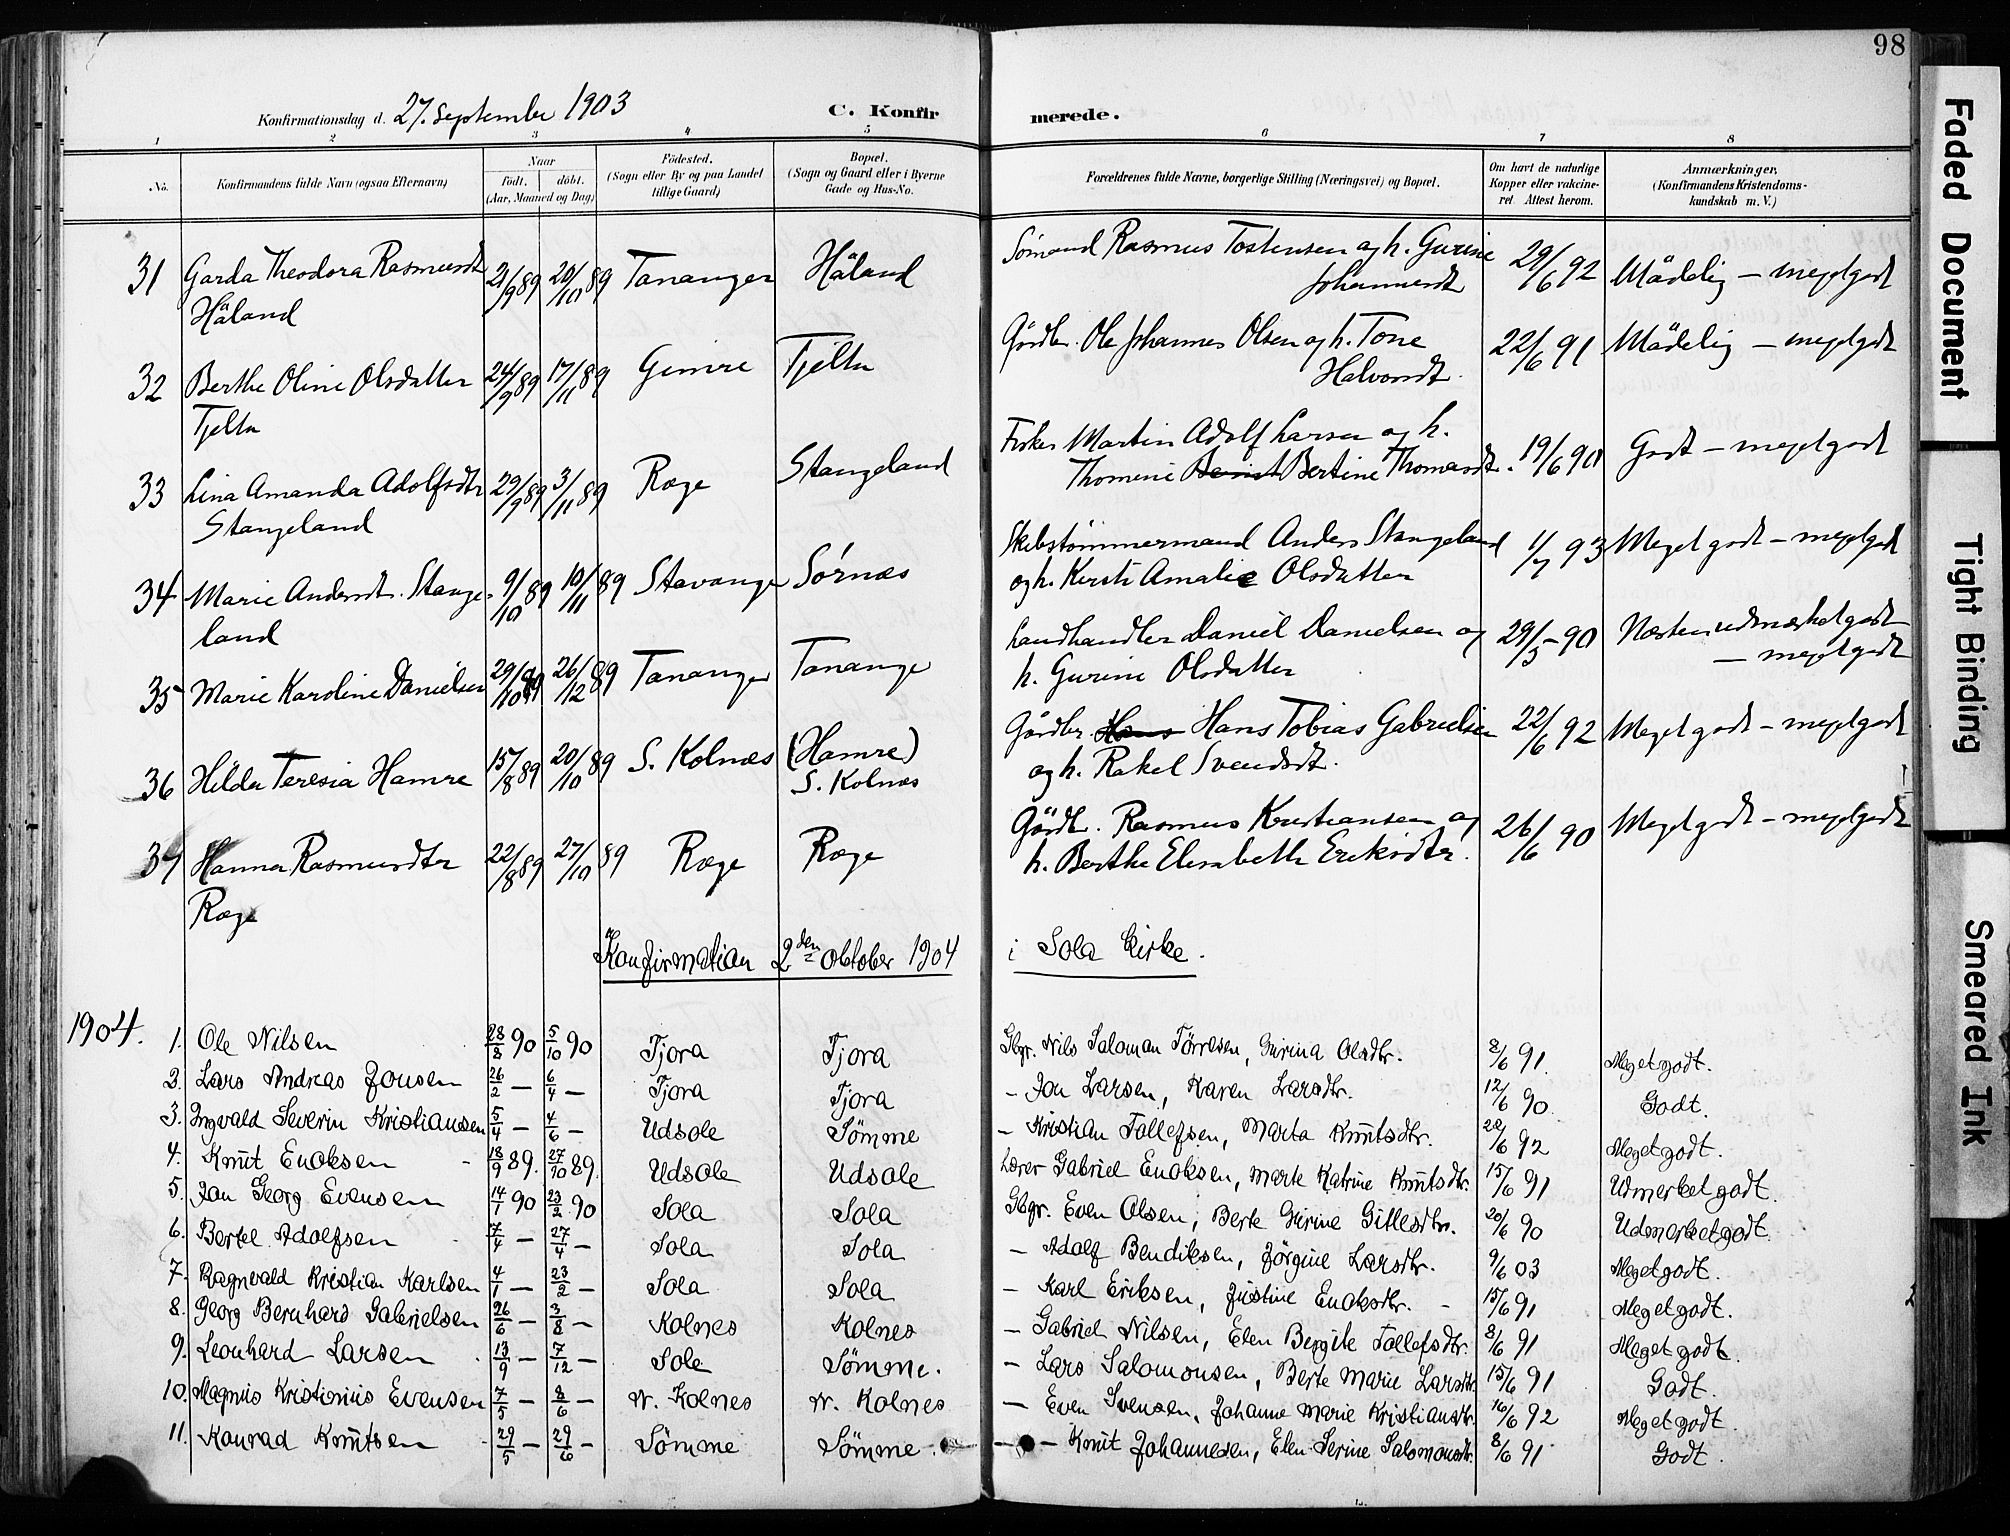 98
Konfirmationsdag d. 27. September 1903 C. Konfir merede.
1 2 3 4 5 6 7 8
No. Konfirmandens fulde Navn (ogsaa Efternavn) Naar født. døbt. (Aar, Maaned og Dag) Fødested. (Sogn eller By og paa Landet tillige Gaard) Bopæl. (Sogn og Gaard eller i Byerne Gade og Hus-No. Forældrenes fulde Navne, borgerlige Stilling (Næringsvei) og Bopæl. Om havt de naturlige Kopper eller vakcineret Attest herom. Anmærkninger, (Konfirmandens Kristendomskundskab m. V.)
31 Garda Theodora Rasmusdt 21/9 89 20/10 89 Tananger Håland Sømand Rasmus Tostensen og h. Gurine 29/6 92 Mådelig – meget godt
Håland Johannesdt
32 Berthe Oline Olsdatter 24/9 89 17/11 89 Gimre Tjelta Gårdbr. Ole Johannes Olsen og h. Tone 22/6 91 Mådelig – meget godt
Tjelta Halvorsdt.
33 Lina Amanda Adolfsdtr 29/9 89 3/11 89 Ræge Stangeland Fisker Martin Adolf Larsen og h. 19/6 90 Godt – meget godt
Stangeland Thomine Bertine Thomasdt.
34 Marie Andersdt. Stange- 9/10 89 10/11 89 Stavanger Sørnæs Skibstømmermand Anders Stangeland 1/7 93 Meget godt – meget godt
land og h. Kersti Amalie Olsdatter
35 Marie Karoline Danielsen 29/10 89 26/12 89 Tananger Tananger Landhandler Daniel Danielsen og 29/5 – 90 Næsten udmærket godt
h. Gurine Olsdatter – meget godt
36 Hilda Teresia Hamre 15/8 89 20/10 89 S. Kolnæs (Hamre) Gårdbr. Hans Hans Tobias Gabrielsen 22/6 92 Meget godt – meget godt
S. Kolnæs og h. Rakel Svendsdt.
37 Hanna Rasmusdtr 22/8 89 27/10 89 Ræge Ræge Gårdb. Rasmus Kristiansen og 26/6 90 Meget godt – meget godt
Ræge h. Berthe Elisabeth Eriksdtr.
Konfirmation 2den Oktober 1904 i Sola Kirke.
1904. 1. Ole Nilsen 28/8 90 5/10 90 Tjora Tjora Gbr. Nils Saloman Tørresen, Gurina Olsdtr. 8/6 91. Meget godt.
2. Lars Andreas Jonsen 26/2 – 6/4 – Tjora Tjora – Jon Larsen, Karen Larsdtr. 12/6 90 Godt.
3. Ingvald Severin Kristiansen 5/4 – 4/6 – Udsole Sömme – Kristian Tollefsen, Marta Knutsdtr. 22/6 92 Meget godt.
4. Knut Enoksen 18/9 89. 27/10 89. Udsole Udsole Lærer Gabriel Enoksen, Marte Katrine Knutsdtr. 15/6 91 Udmerket godt.
5. Jon Georg Evensen 14/1 90 23/2 90 Sola Sola Gbr. Even Olsen, Berte Gurine Gitlesdtr. 20/6 90 Udmerket godt.
6. Bertel Adolfsen 7/4 – 27/4 – Sola Sola – Adolf Bendiksen, Jörgine Larsdtr. 9/6 03 Meget godt.
7. Ragnvald Kristian Karlsen 4/1 – 23/2 – Sola Sola – Karl Eriksen, Justine Enoksdtr. – 15/6 91 Meget godt.
8. Georg Bernhard Gabrielsen 26/6 – 3/8 – Kolnes Kolnes – Gabriel Nilsen, Elen Bergite Tollefsdtr. 8/6 91 Meget godt.
9. Leonhard Larsen 13/9 – 7/12 – Sole Sömme. – Lars Salomonsen, Berte Marie Larsdtr. 15/6 91 Godt.
10. Magnus Kristinius Evensen 7/5 – 8/6 – N. Kolnes N. Kolnes – Even Svensen, Johanne Marie Kristiansdtr. 16/6 92 Meget godt.
11. Konrad Knutsen 29/5 – 29/6 – Sömme Sömme. – Knut Johannesen, Elen Serine Salomonsdtr. 8/6 91 Godt.
Faded Document
Tight Binding
Smeared Ink